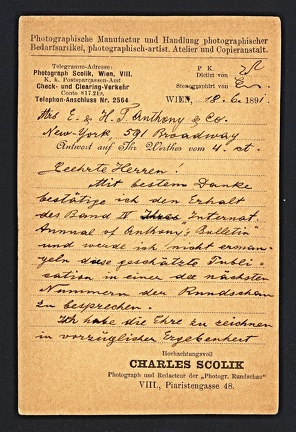 Photographische Manufactur und Handlung photographischer
Bedarfsartikel, photographisch-artist. Atelier und Copieranstalt.
Telegramm-Adresse:
Photograph Scolik, Wien, VIII.
K. k. Postsparcassen-Amt
Check- und Clearing-Verkehr
Conto 817.219.
Telephon-Anschluss Nr. 2564
P. K.
Dictirt von
Stenographirt von
WIEN, 18. 6. 1891.
Mrs E. & H. T. Anthony & Co.
New-York, 591 Broadway
Antwort auf Ihr Werthes vom 4. ct.
Geehrte Herren!
Mit bestem Danke
bestätige ich den Erhalt
des Band IV Ihres "Internat.
Annual of Anthony's Bulletin"
und werde ich nicht erman-
geln diese geschätzte Publi-
cation in einer der nächsten
Nummern der Rundschau
zu besprechen.
Ich habe die Ehre zu zeichnen
in vorzüglicher Ergebenheit
Hochachtungsvoll
CHARLES SCOLIK
Photograph und Redacteur der „Photogr. Rundschau"
VIII., Piaristengasse 48.